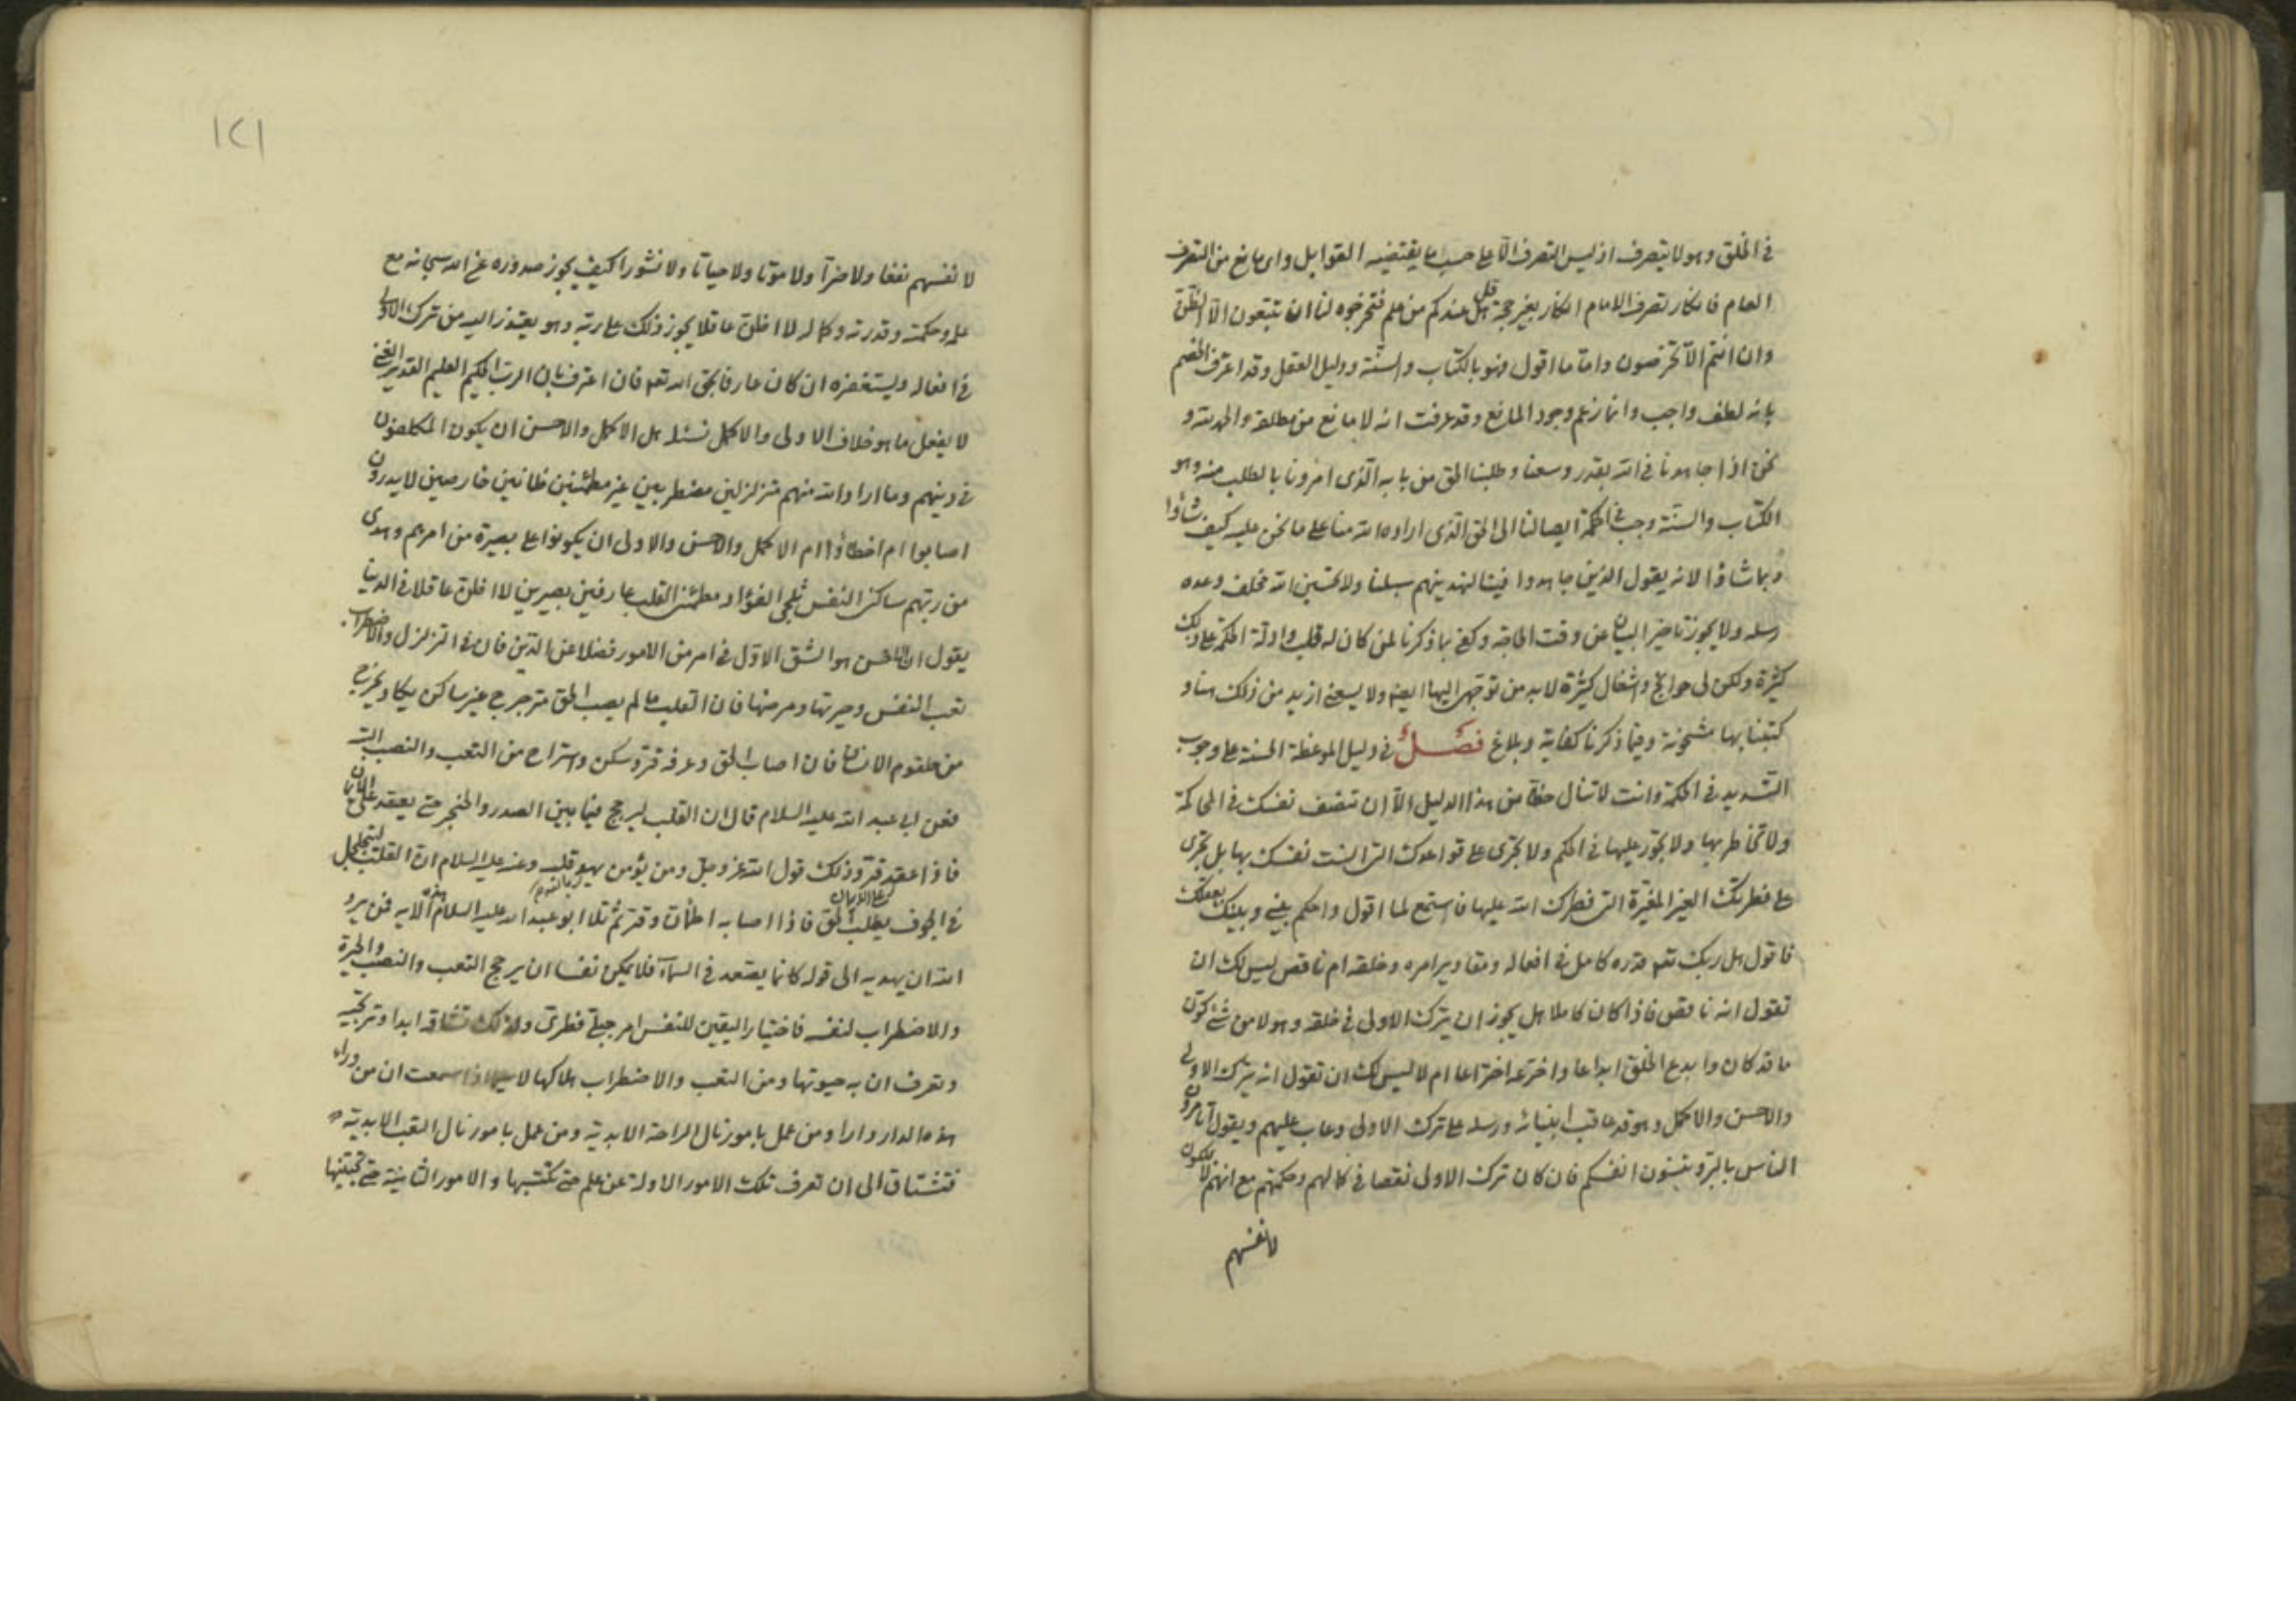 في الخلق وهو لا يتصرف اذ ليس التصرف الا على حسب ما يقتضيه القوابل واى مانع من التصرف
العام فانكار تصرف الامام انكار بغير حجة قل هل عندكم من علم فتخرجوه لنا ان تتبعون الا الظن
وان انتم الا تخرصون واما ما اقول فهو بالكتاب والسنة ودليل العقل وقد اعترف الخصم
بانه لطف واجب وانما زعم وجود المانع وقد عرفت انه لا مانع من مطلقه والحمد لله و
نحن اذا جاهدنا في الله بقدر وسعنا وطلبنا الحق من بابه الذى امرونا بالطلب منه وهو
الكتاب والسنة وجب في الحكمة ايصالنا الى الحق الذى اراده الله منا على ما نحن عليه كيف شاؤا
وبما شاؤا لانه يقول الذين جاهدوا فينا لنهدينهم سبلنا ولا تحسبن الله مخلف وعده
رسله ولا يجوز تاخير البيان عن وقت الحاجة وكفى بما ذكرنا لمن كان له قلب وادلة الحكمة على ذلك
كثيرة ولكن لى حوائج واشغال كثيرة لا بد من توجهى اليها ايضا ولا يسعنى ازيد من ذلك هنا و
كتبنا بها مشحونة وفيما ذكرنا كفاية وبلاغ فصل في دليل الموعظة الحسنة على وجوب
التسديد في الحكمة وانت لا تنال حظا من هذا الدليل الا ان تنصف نفسك في المحاكمة
ولا تخاطر بها ولا تجور عليها في الحكم ولا تجرى على قواعدك التى انست نفسك بها بل تجرى
على فطرتك الغير المغيرة التى فطرك الله عليها فاستمع لما اقول واحكم بينى وبينك بعقلك
فاقول هل ربك تعم قدره كامل في افعاله ومقاديرامره وخلقه ام ناقص ليس لك ان
تقول انه ناقص فاذا كان كاملا هل يجوز ان يترك الاولى في خلقه وهو لا من شئ كون
ما قد كان وابدع الخلق ابداعا واخترعه اختراعا ام لا ليس لك ان تقول انه يترك الاولى
والاحسن والاكمل وهو قد عاقب انبيائه ورسله على ترك الاولى وعاب عليهم ويقول أتامرون
الناس بالبر وتنسون انفسكم فان كان ترك الاولى نقصا في كمالهم وحكمتهم مع انهم لا يملكون
لانفسهم
١٢١
لانفسهم نفعا ولا ضرا ولا موتا ولا حياتا ولا نشورا كيف يجوز صدوره عن الله سبحانه مع
علمه وحكمته وقدرته وكماله لا اظن عاقلا يجوز ذلك على ربه وهو يعتذر اليه من ترك الاولى
في افعاله ويستغفره ان كان عارفا بحق الله تعم فان اعترف بان الرب الحكيم العليم القدير الغنى
لا يفعل ما هو خلاف الاولى والاكمل نسئله هل الاكمل والاحسن ان يكون المكلفون
في دينهم وما اراد الله منهم متزلزلين مضطربين غير مطمئنين ظانين خارصين لا يدرون
اصابوا ام اخطاؤا ام الاكمل والاحسن والاولى ان يكونوا على بصيرة من امرهم وهدى
من ربهم ساكن النفس ثلجى الفؤاد مطمئن القلب عارفين بصيرين لا اظن عاقلا في الدنيا
يقول ان الاحسن هو الشق الاول في امر من الامور فضلا عن الدين فان في التزلزل والاضطراب
تعب النفس وحيرتها ومرضها فان القلب ما لم يصب الحق مترجرج غير ساكن يكاد يخرج
من حلقوم الانسان فان اصاب الحق وعرفه قر وسكن واستراح من التعب والنصب البتة
فعن ابى عبد الله عليه السلام قال ان القلب ليرجج فيما بين الصدر والحنجر حتى يعقد على الايمان
فاذا عقد قر وذلك قول الله عز وجل ومن يؤمن بالله يهد قلبه وعنه عليه السلام ان القلب ليتجلجل
في الجوف يطلب الحق فاذا اصابه اطمأن وقر ثم تلا ابو عبد الله عليه السلام هذه الاية فمن يرد
الله ان يهديه الى قوله كانما يصعد في السمآء فلا يمكن نفسا ان يرجح التعب والنصب والحيرة
والاضطراب لنفسه فاختيار اليقين للنفس امر جبلى فطرى ولذلك تشتاقه ابدا وترتجيه
وتعرف ان به حيوتها ومن التعب والاضطراب هلاكها لا سيما اذا سمعت ان من وراء
هذه الدار دارا ومن عمل بامور نال الراحة الابدية ومن عمل بامور نال التعب الابدية
فتشتاق الى ان تعرف تلك الامور الاولة عن علم حتى تكتسبها والامور الثانية حتى تجتنبها